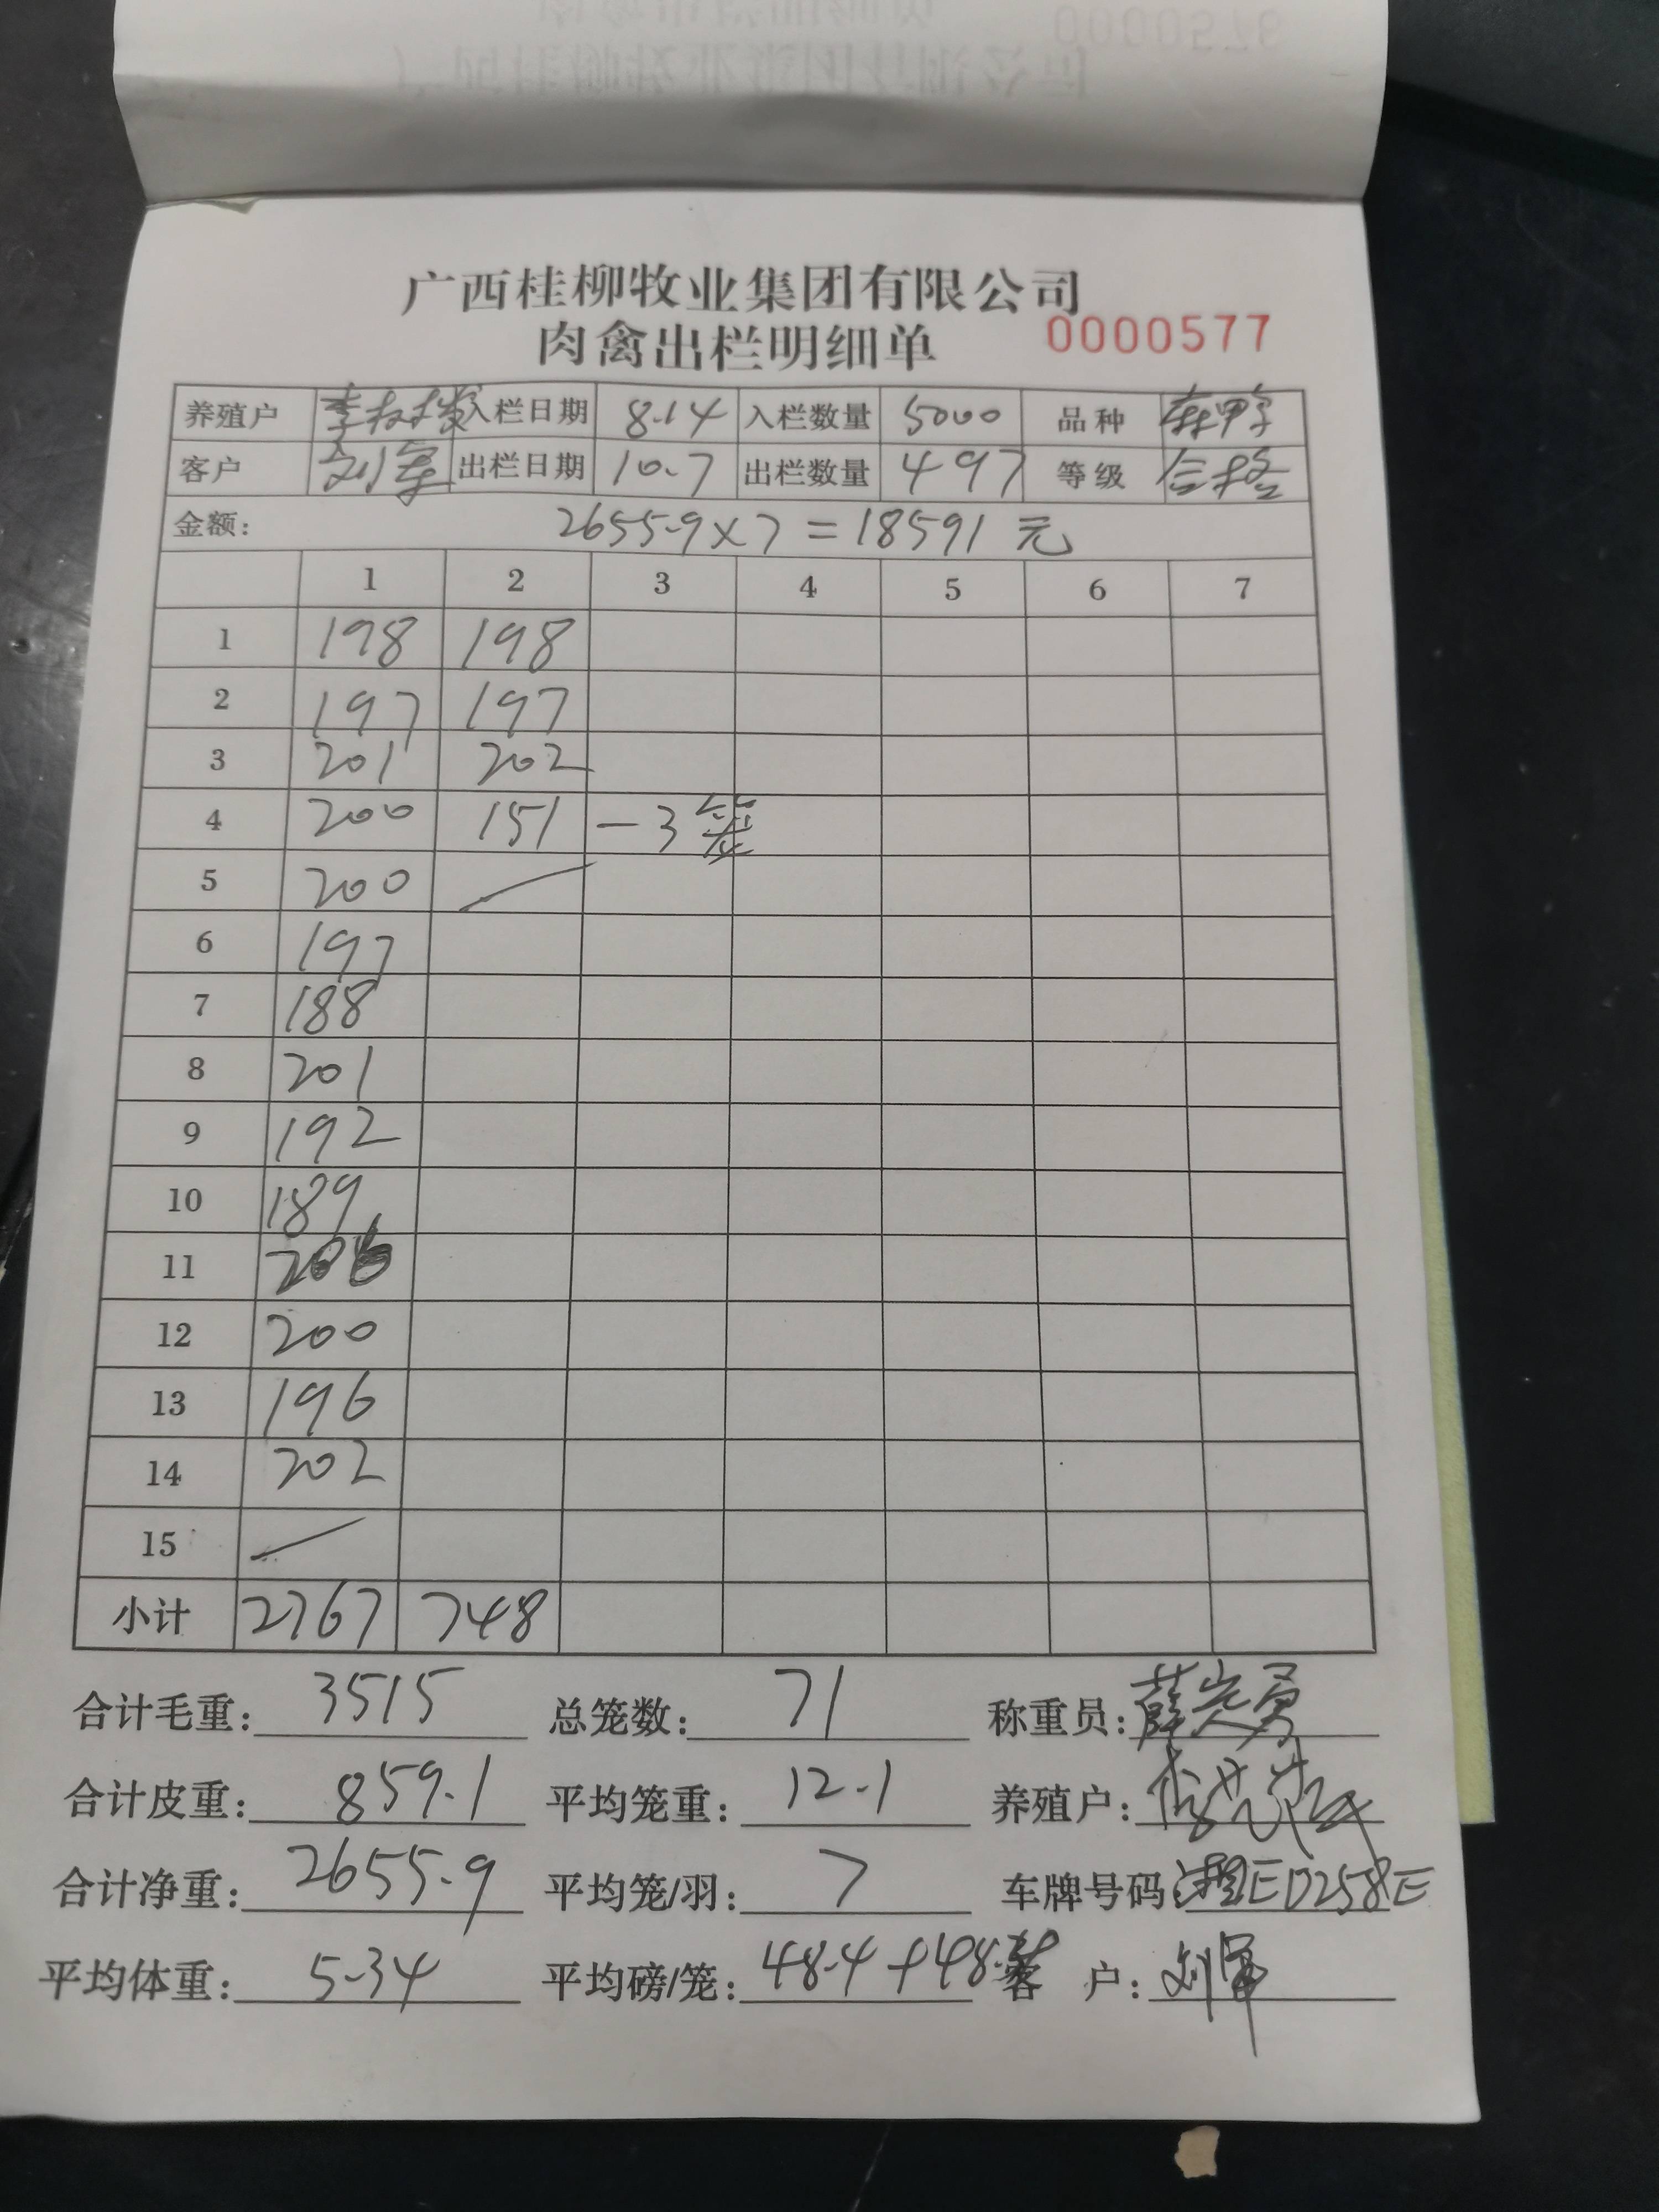 广西桂柳牧业集团有限公司
肉禽出栏明细单 0000577
养殖户 入栏日期 8.14 入栏数量 5000 品种
客户 刘军 出栏日期 10.7 出栏数量 497 等级 合格
金额: 2655.9×7=18591元
1 2 3 4 5 6 7
1 198 198
2 197 197
3 201 202
4 200 151 -3笼
5 200
6 197
7 188
8 201
9 192
10 189
11 206
12 200
13 196
14 202
15
小计 2767 748
合计毛重: 3515 总笼数: 71 称重员:
合计皮重: 859.1 平均笼重: 12.1 养殖户:
合计净重: 2655.9 平均笼/羽: 7 车牌号码: 湘ED258E
平均体重: 5.34 平均磅/笼: 48.4+48. 客户: 刘军